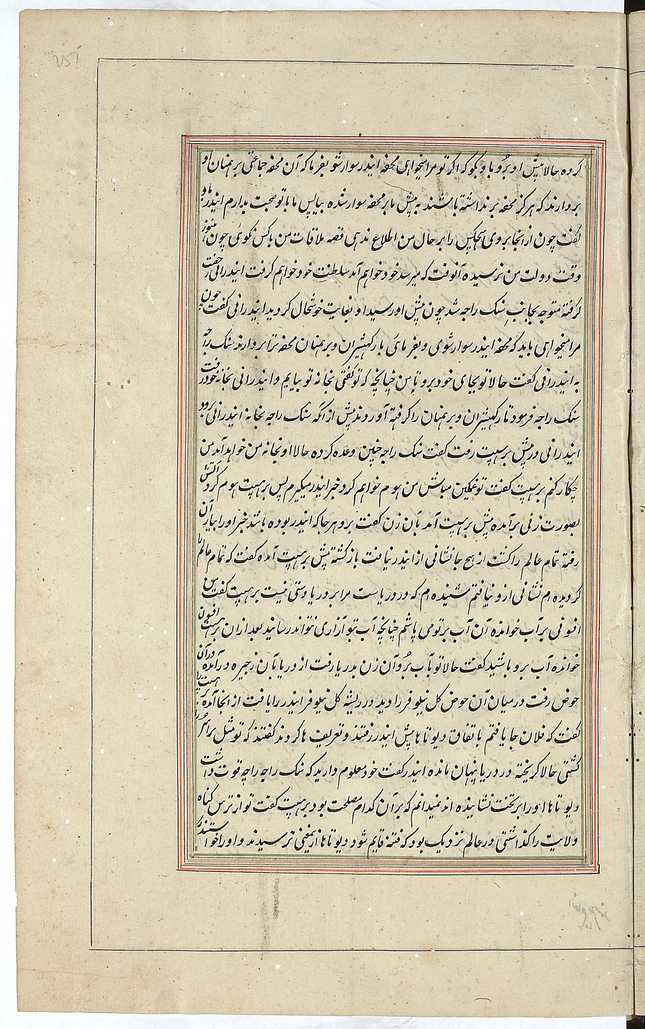 کرده حالا پیش او برو و با و بگو که اگر تو مرا میخواهی محفه ایندر سوار شو بفرما که آن محفه جماعتی برهمنان و
بردارند که هرگز محفه برنداشته باشند به پیش ما بر محفه سوار شده بیایی ما با تو صحبت بدارم ایندر باو
گفت چون از اینجا بروی هیچکس را بر حال من اطلاع ندهی قصه ملاقات من با کس نگوی چون هنوز
وقت دولت من نرسیده آنوقت که میرسد خود خواهم آمد سلطنت خود خواهم گرفت ایندرانی رخصت
گرفته متوجه بجانب نهک راجه شد چون پیش او رسید او بغایت خوشحال گردید ایندرانی گفت چون
مرا میخواهی باید که محفه ایندر سوار شوی و بفرمای تا رکهیشران و برهمنان محفه ترا بردارند نهک راجه
به ایندرانی گفت حالا تو بجای خود برو تا من چنانچه که تو گفتی بخانه تو بیایم و ایندرانی بخانه خود رفت
نهک راجه فرمود تا رکهیشران و برهمنان را گرفته آوردند پیش از آنکه نهک راجه بخانه ایندرانی برود
ایندرانی در پیش برهسپت رفت گفت نهک راجه چنین وعده کرده حالا او بخانه من خواهد آمد من
چکار کنم برهسپت گفت تو غمگین مباش من هوم خواهم کرد خبر ایندر میگیرم پس برهسپت هوم کرد آتش
بصورت زنی برآمده پیش برهسپت آمد بآن زن گفت برو هر جا که ایندر بوده باشد خبر او را بیار آن
رفته تمام عالم را گشت از هیچ جا نشانی از ایندر نیافت بازگشته پیش برهسپت آمده گفت که تمام عالم را
گردیده ام نشانی ازو نیافتم شنیده ام که در دریاست مرا بر دریا دستی نیست برهسپت گفت من
افسونی بر آب خوانده آن آب بر تو می پاشم چنانچه آب بتو آزاری نتواند رسانید بعد از ان برهسپت افسون
خوانده آب برو پاشید گفت حالا تو بآب برو آن زن بدریا رفت از دریا بآن زنجیره در آمده درآن
حوض رفت در میان آن حوض گل نیلوفر را دید در ریشه گل نیلوفر ایندر را یافت از انجا آمده به برهسپت
گفت که فلان جا یافتم باتفاق دیوتاها پیش ایندر رفتند و تعریف ها کردند گفتند که تو مثل برتر
کشتی حالا گریخته در دریا پنهان مانده ایندر گفت خود معلوم دارید که نهک راجه راجه قوت داشت
دیوتاها او را بر تخت نشانیده اند نمیدانم که بر آن کدام مصلحت بود برهسپت گفت تو از ترس گناه
ولایت را گذاشتی در عالم نزدیک بود که فتنه قایم شود دیوتاها ازین معنی ترسیدند و او را خواستند